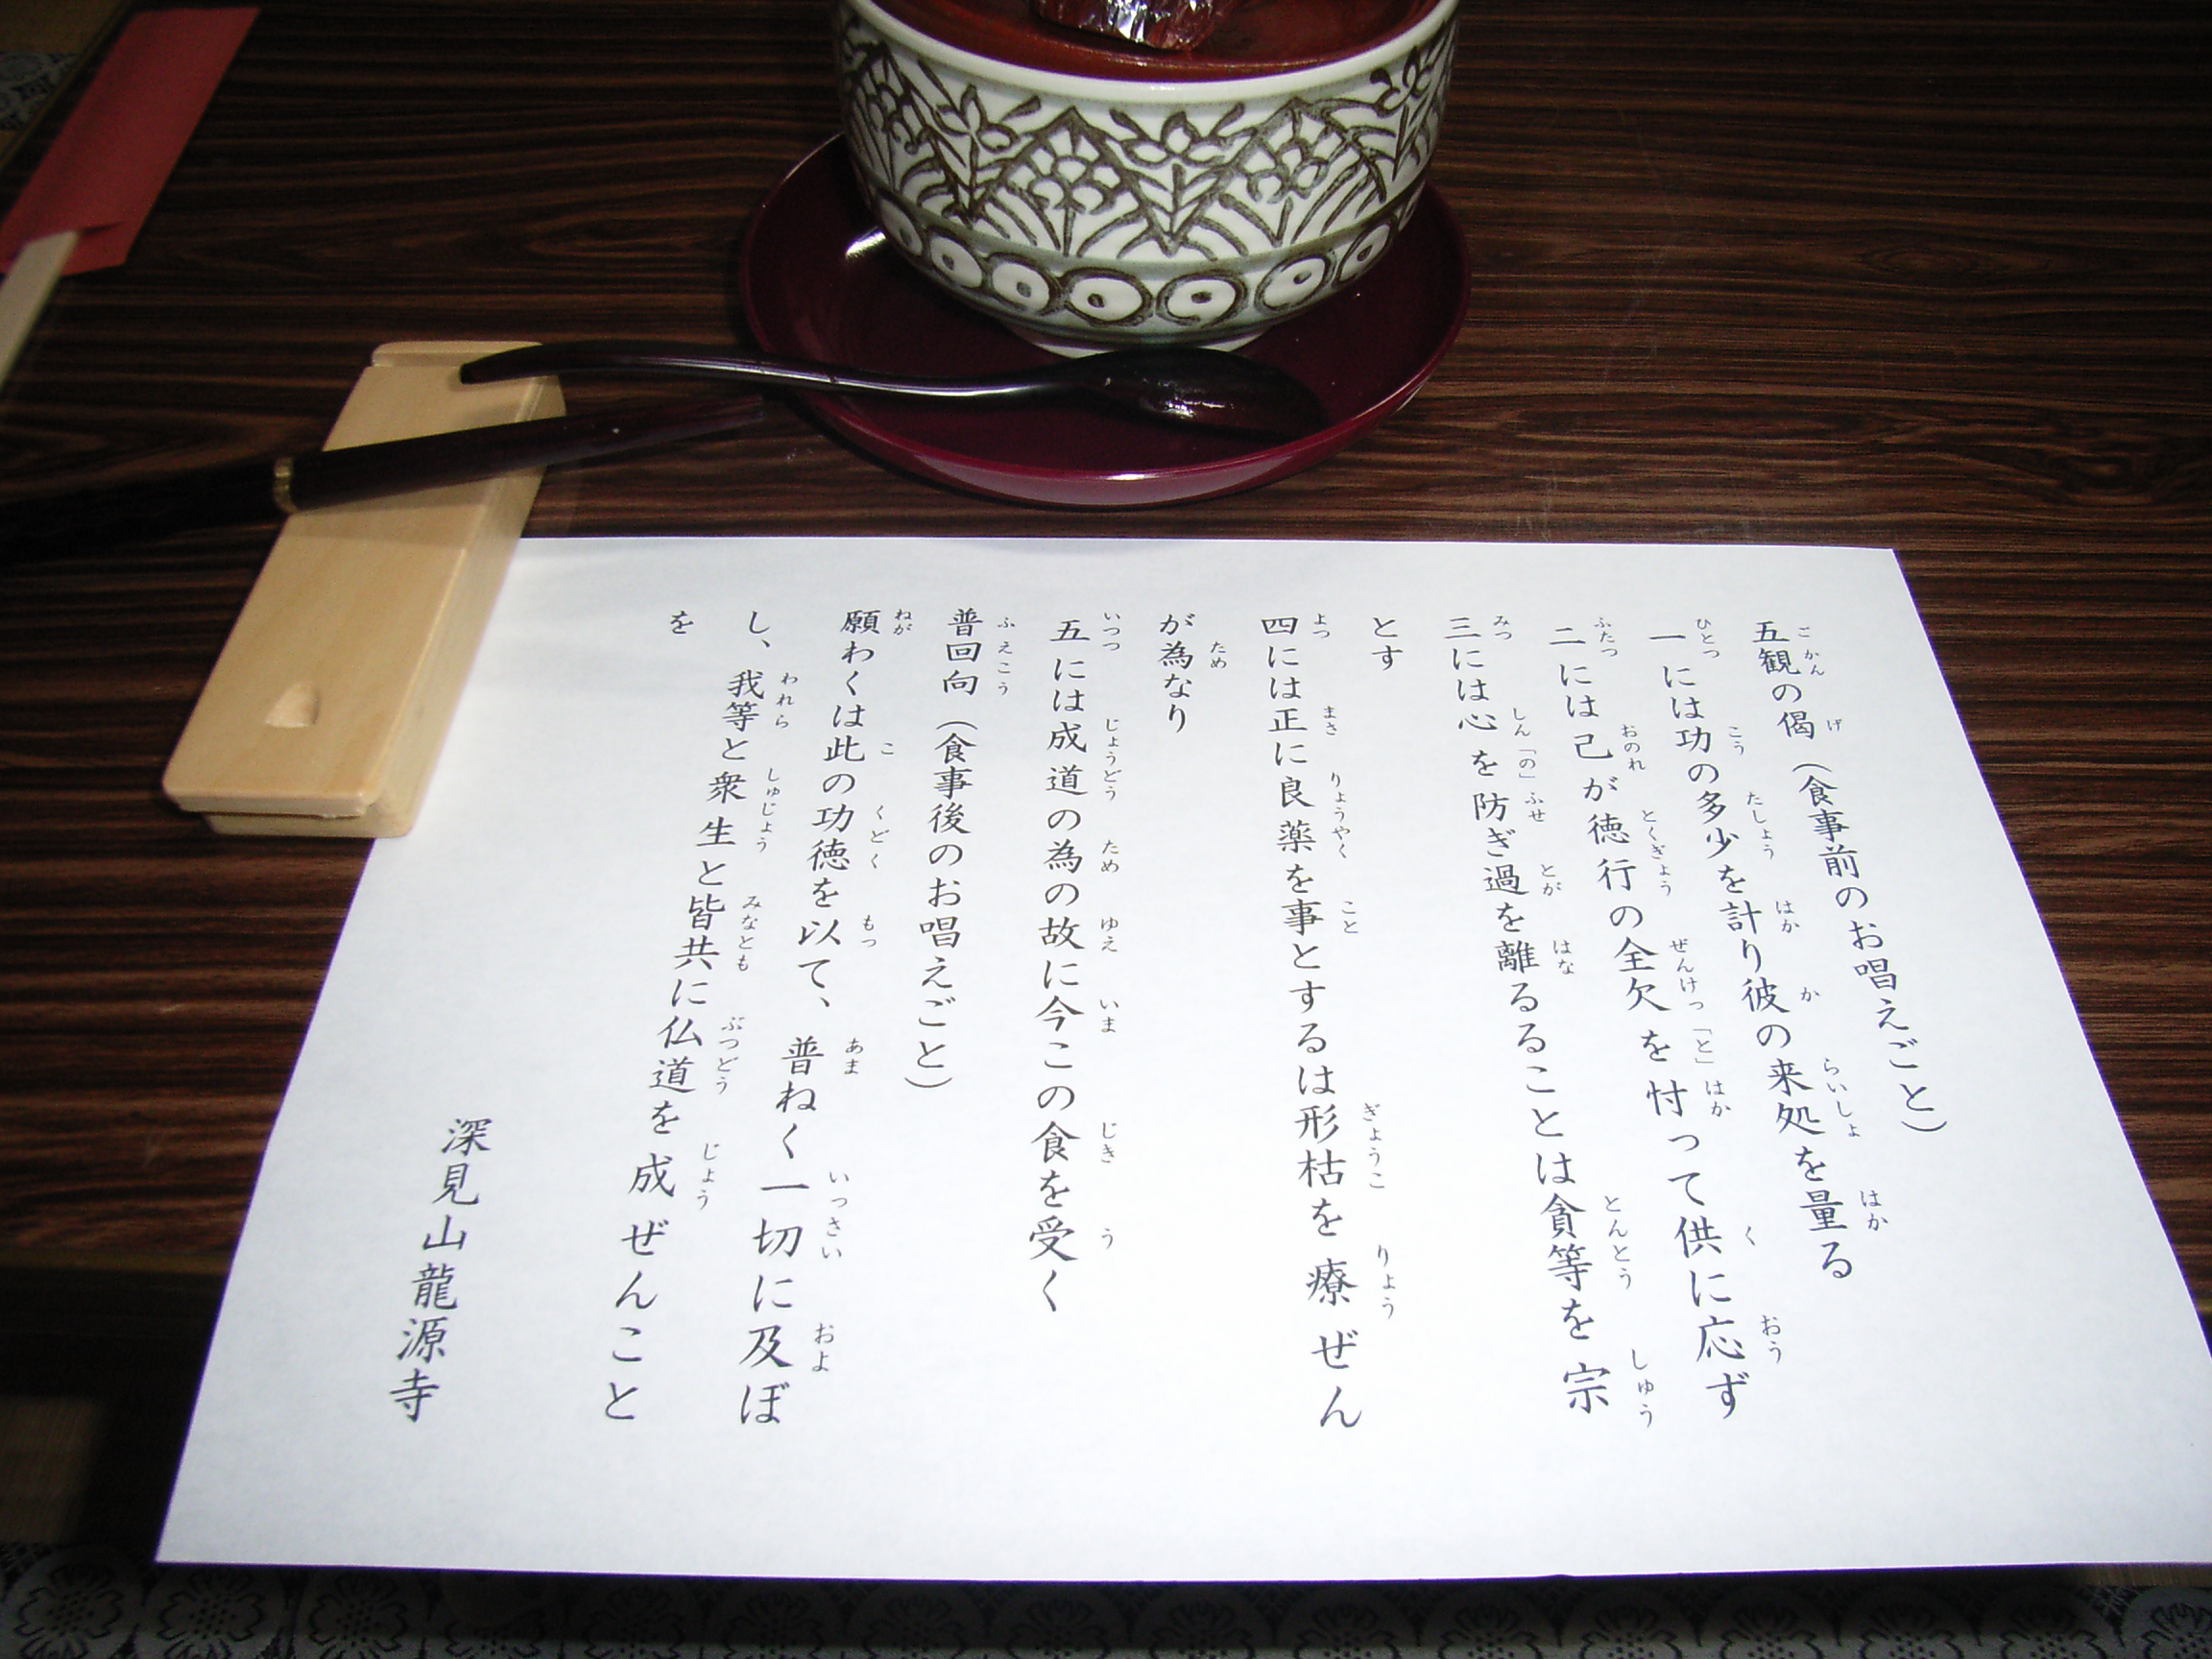 五観の偈（食事前のお唱えごと）
一には功の多少を計り彼の来処を量る
二には己が徳行の全欠を忖って供に応ず
三には心を防ぎ過を離るることは貪等を宗
とす
四には正に良薬を事とするは形枯を療ぜん
が為なり
五には成道の為の故に今この食を受く
普回向（食事後のお唱えごと）
願わくは此の功徳を以て、普ねく一切に及ぼ
し、我等と衆生と皆共に仏道を成ぜんこと
を
深見山龍源寺